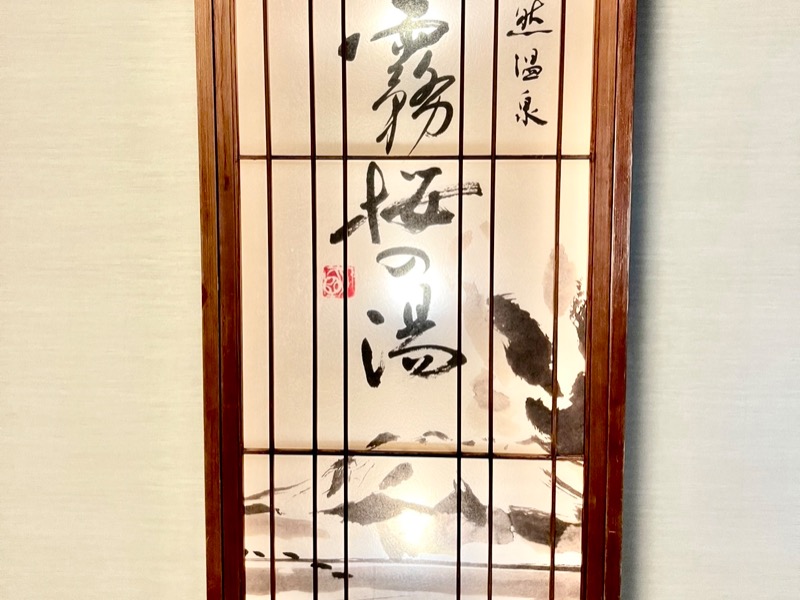 然温泉
霧桜の湯